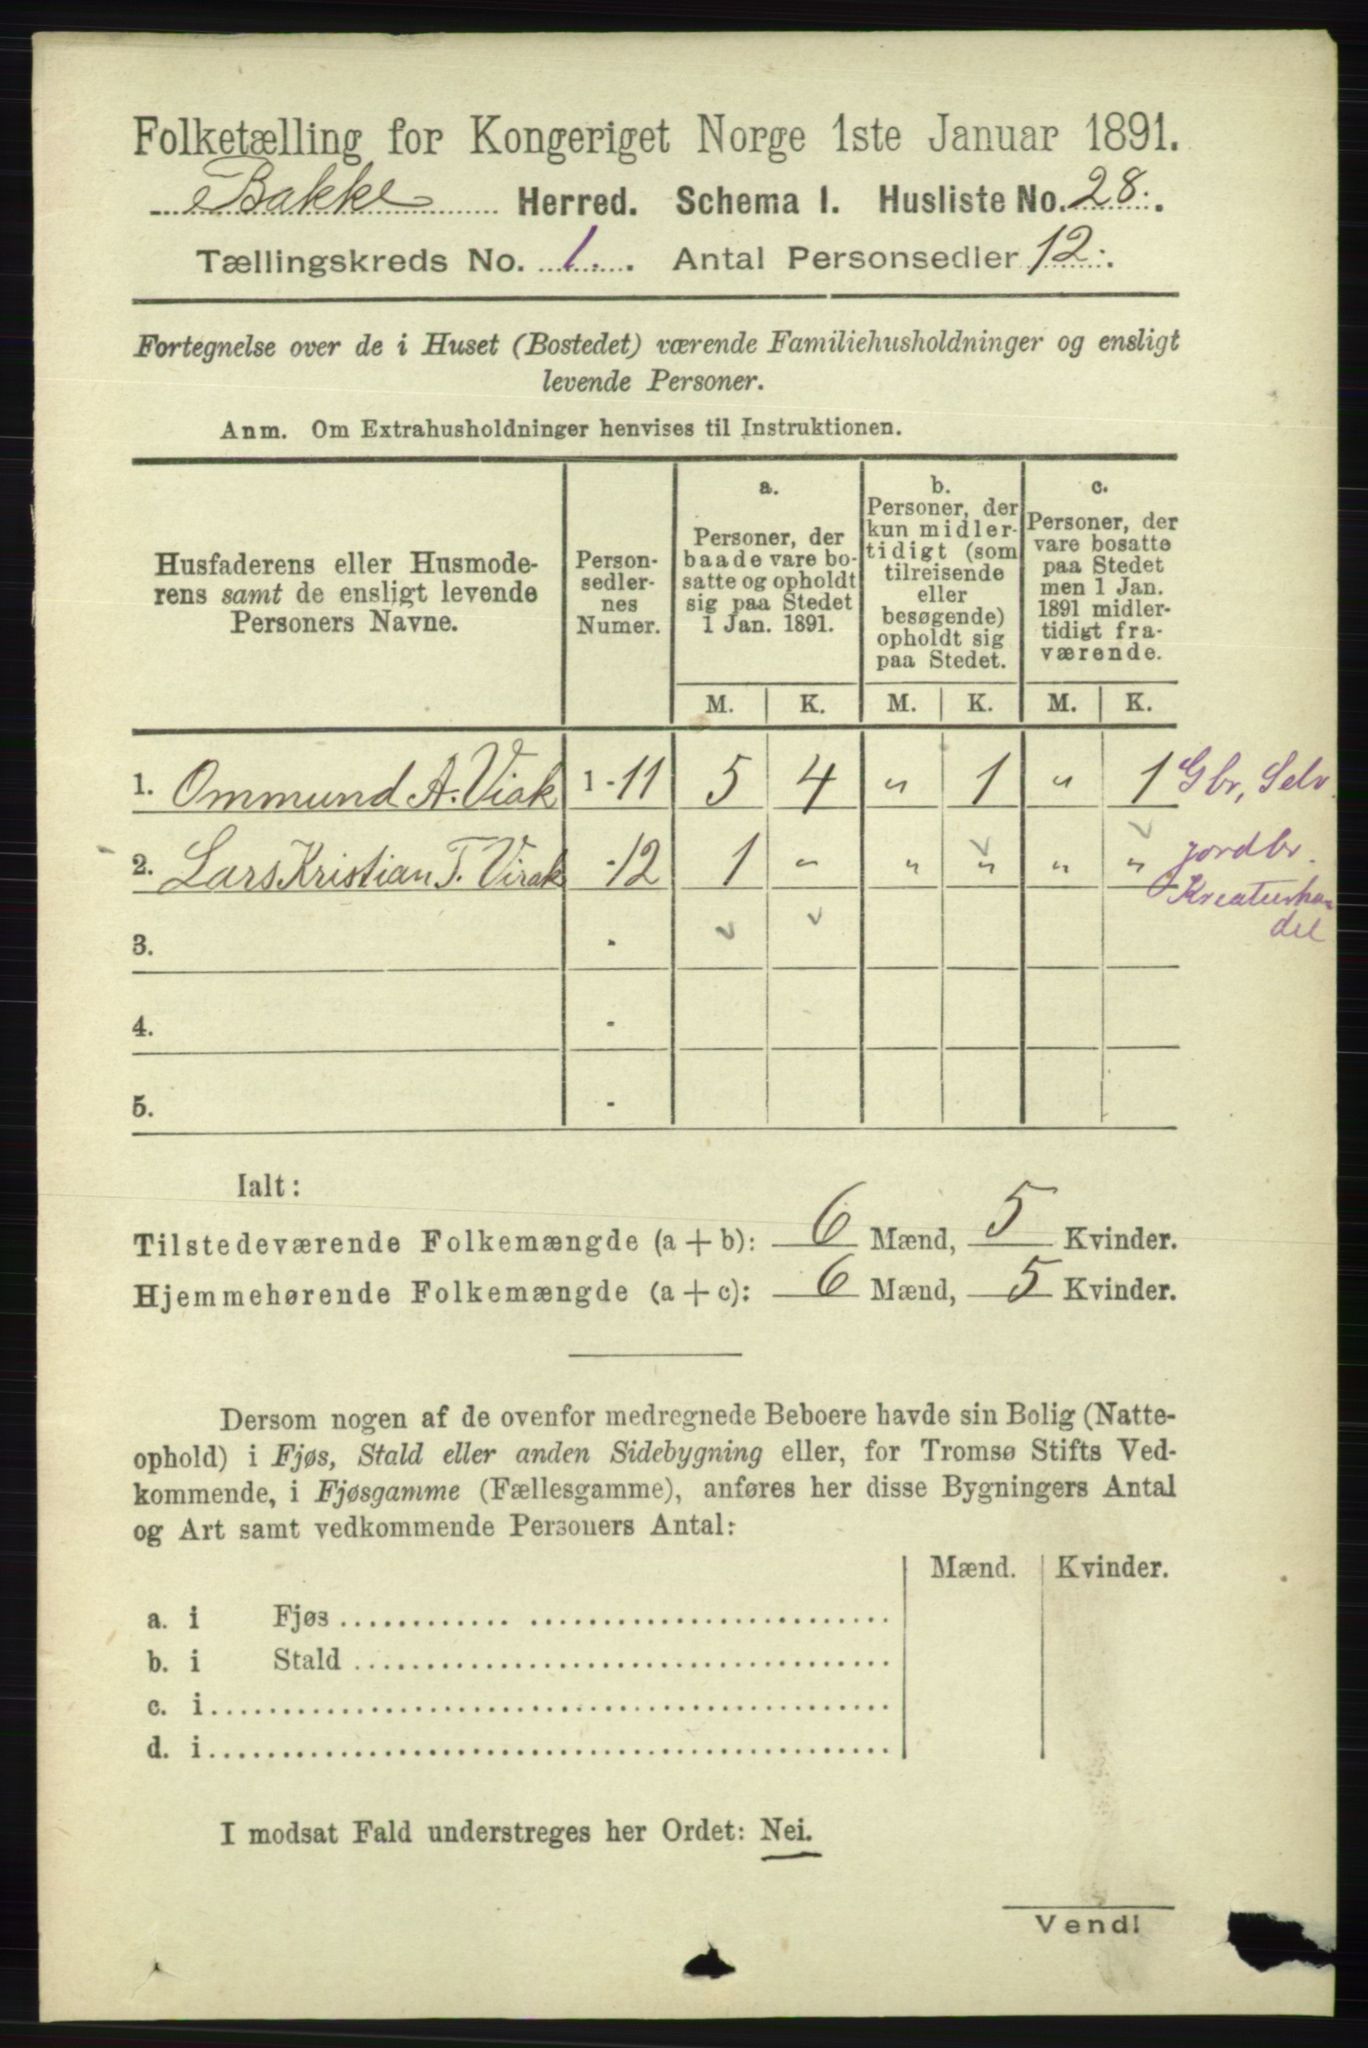 Folketælling for Kongeriget Norge 1ste Januar 1891.
Bakke Herred. Schema I. Husliste No. 28.
Tællingskreds No. 1. Antal Personsedler 12.
Fortegnelse over de i Huset (Bostedet) værende Familiehusholdninger og ensligt
levende Personer.
Anm. Om Extrahusholdninger henvises til Instruktionen.
Husfaderens eller Husmode-
rens samt de ensligt levende
Personers Navne.
Person-
sedler-
nes
Numer.
a.
Personer, der
baade vare bo-
satte og opholdt
sig paa Stedet
1 Jan. 1891.
b.
Personer, der
kun midler-
tidigt (som
tilreisende
eller
besøgende)
opholdt sig
paa Stedet.
c.
Personer, der
vare bosatte
paa Stedet
men 1 Jan.
1891 midler-
tidigt fra-
værende.
M. K. M. K. M. K.
1. Ommund A. Viak 1-11 5 4 " 1 " 1 Gbr, Selv.
2. Lars Kristian T. Virak -12 1 " " " " " jordbr.
Kreaturhan-
del
3. -
4. -
5. -
Ialt:
Tilstedeværende Folkemængde (a + b): 6 Mænd, 5 Kvinder.
Hjemmehørende Folkemængde (a + c): 6 Mænd, 5 Kvinder.
Dersom nogen af de ovenfor medregnede Beboere havde sin Bolig (Natte-
ophold) i Fjøs, Stald eller anden Sidebygning eller, for Tromsø Stifts Ved-
kommende, i Fjøsgamme (Fællesgamme), anføres her disse Bygningers Antal
og Art samt vedkommende Personers Antal:
Mænd. Kvinder.
a. i Fjøs
b. i Stald
c. i
d. i
I modsat Fald understreges her Ordet: Nei.
Vend!